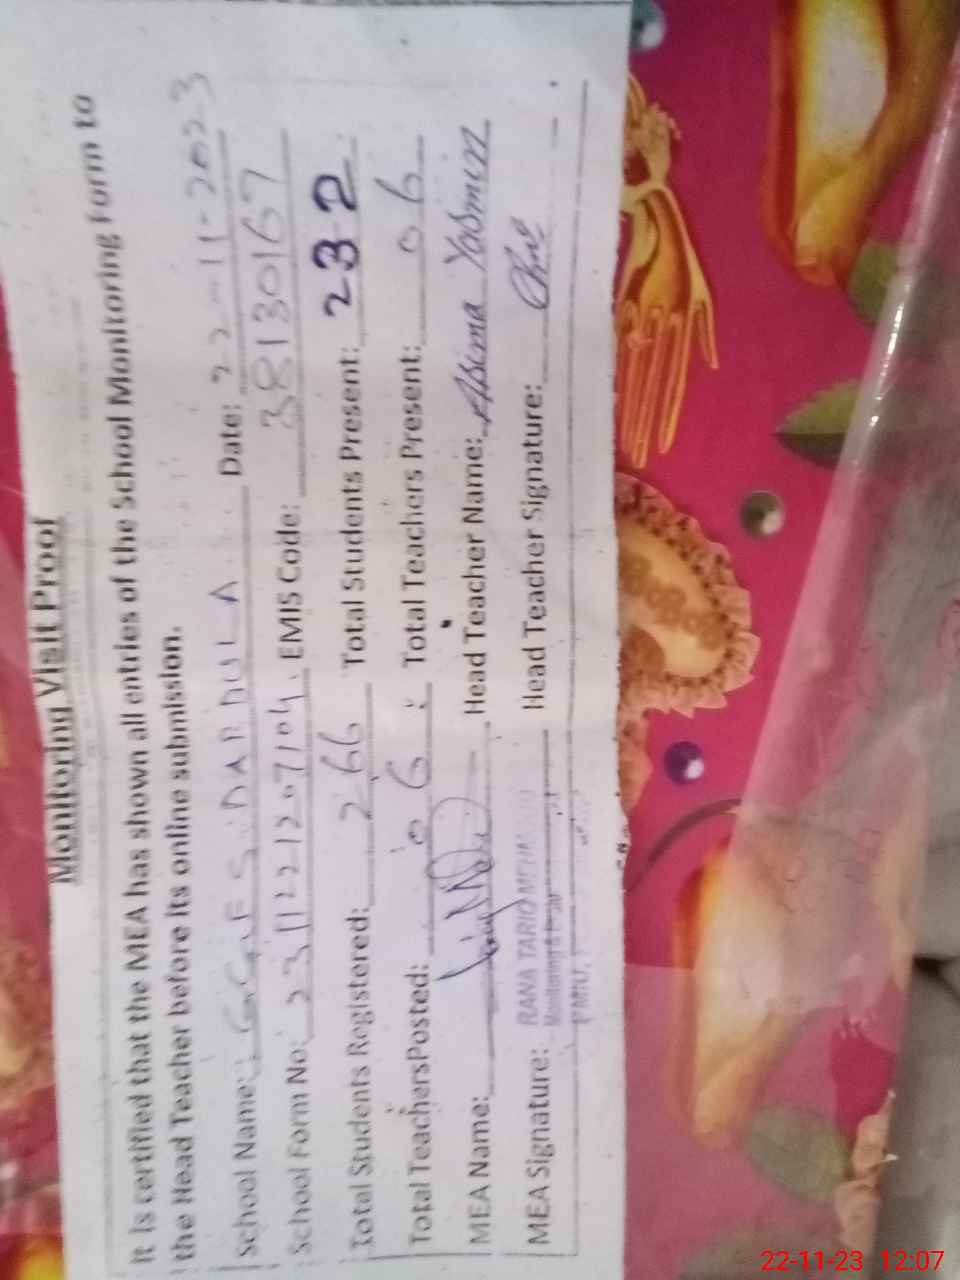 Monitoring Visit Proof
It is certified that the MEA has shown all entries of the School Monitoring Form to
the Head Teacher before its online submission.
School Name: GGES DARBULA Date: 22-11-2023
School Form No: EMIS Code: 38130167
Total Students Registered: 266 Total Students Present: 232
Total TeachersPosted: 06 Total Teachers Present: 06
MEA Name: Head Teacher Name: Asima Yasmin
MEA Signature: RANA TARIQ MEHMOOD Head Teacher Signature:
Monitoring &
PMIU,
22-11-23 12:07